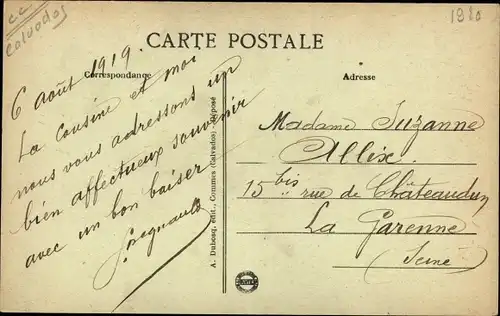 CC
Calvados
1980
CARTE POSTALE
Correspondance
Adresse
6 Août 1919.
La Cousine et moi
nous vous adressons un
bien affectueux souvenir
avec un bon baiser
A. Dubosq, édit., Commes (Calvados) - Déposé
Madame Suzanne
Allix.
15 bis rue de Châteaudun
La Garenne
Seine